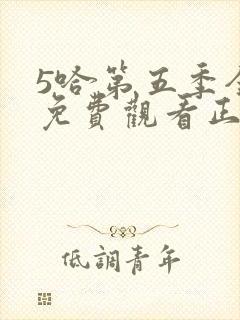 5哈第五季
免費觀看正
低調青年